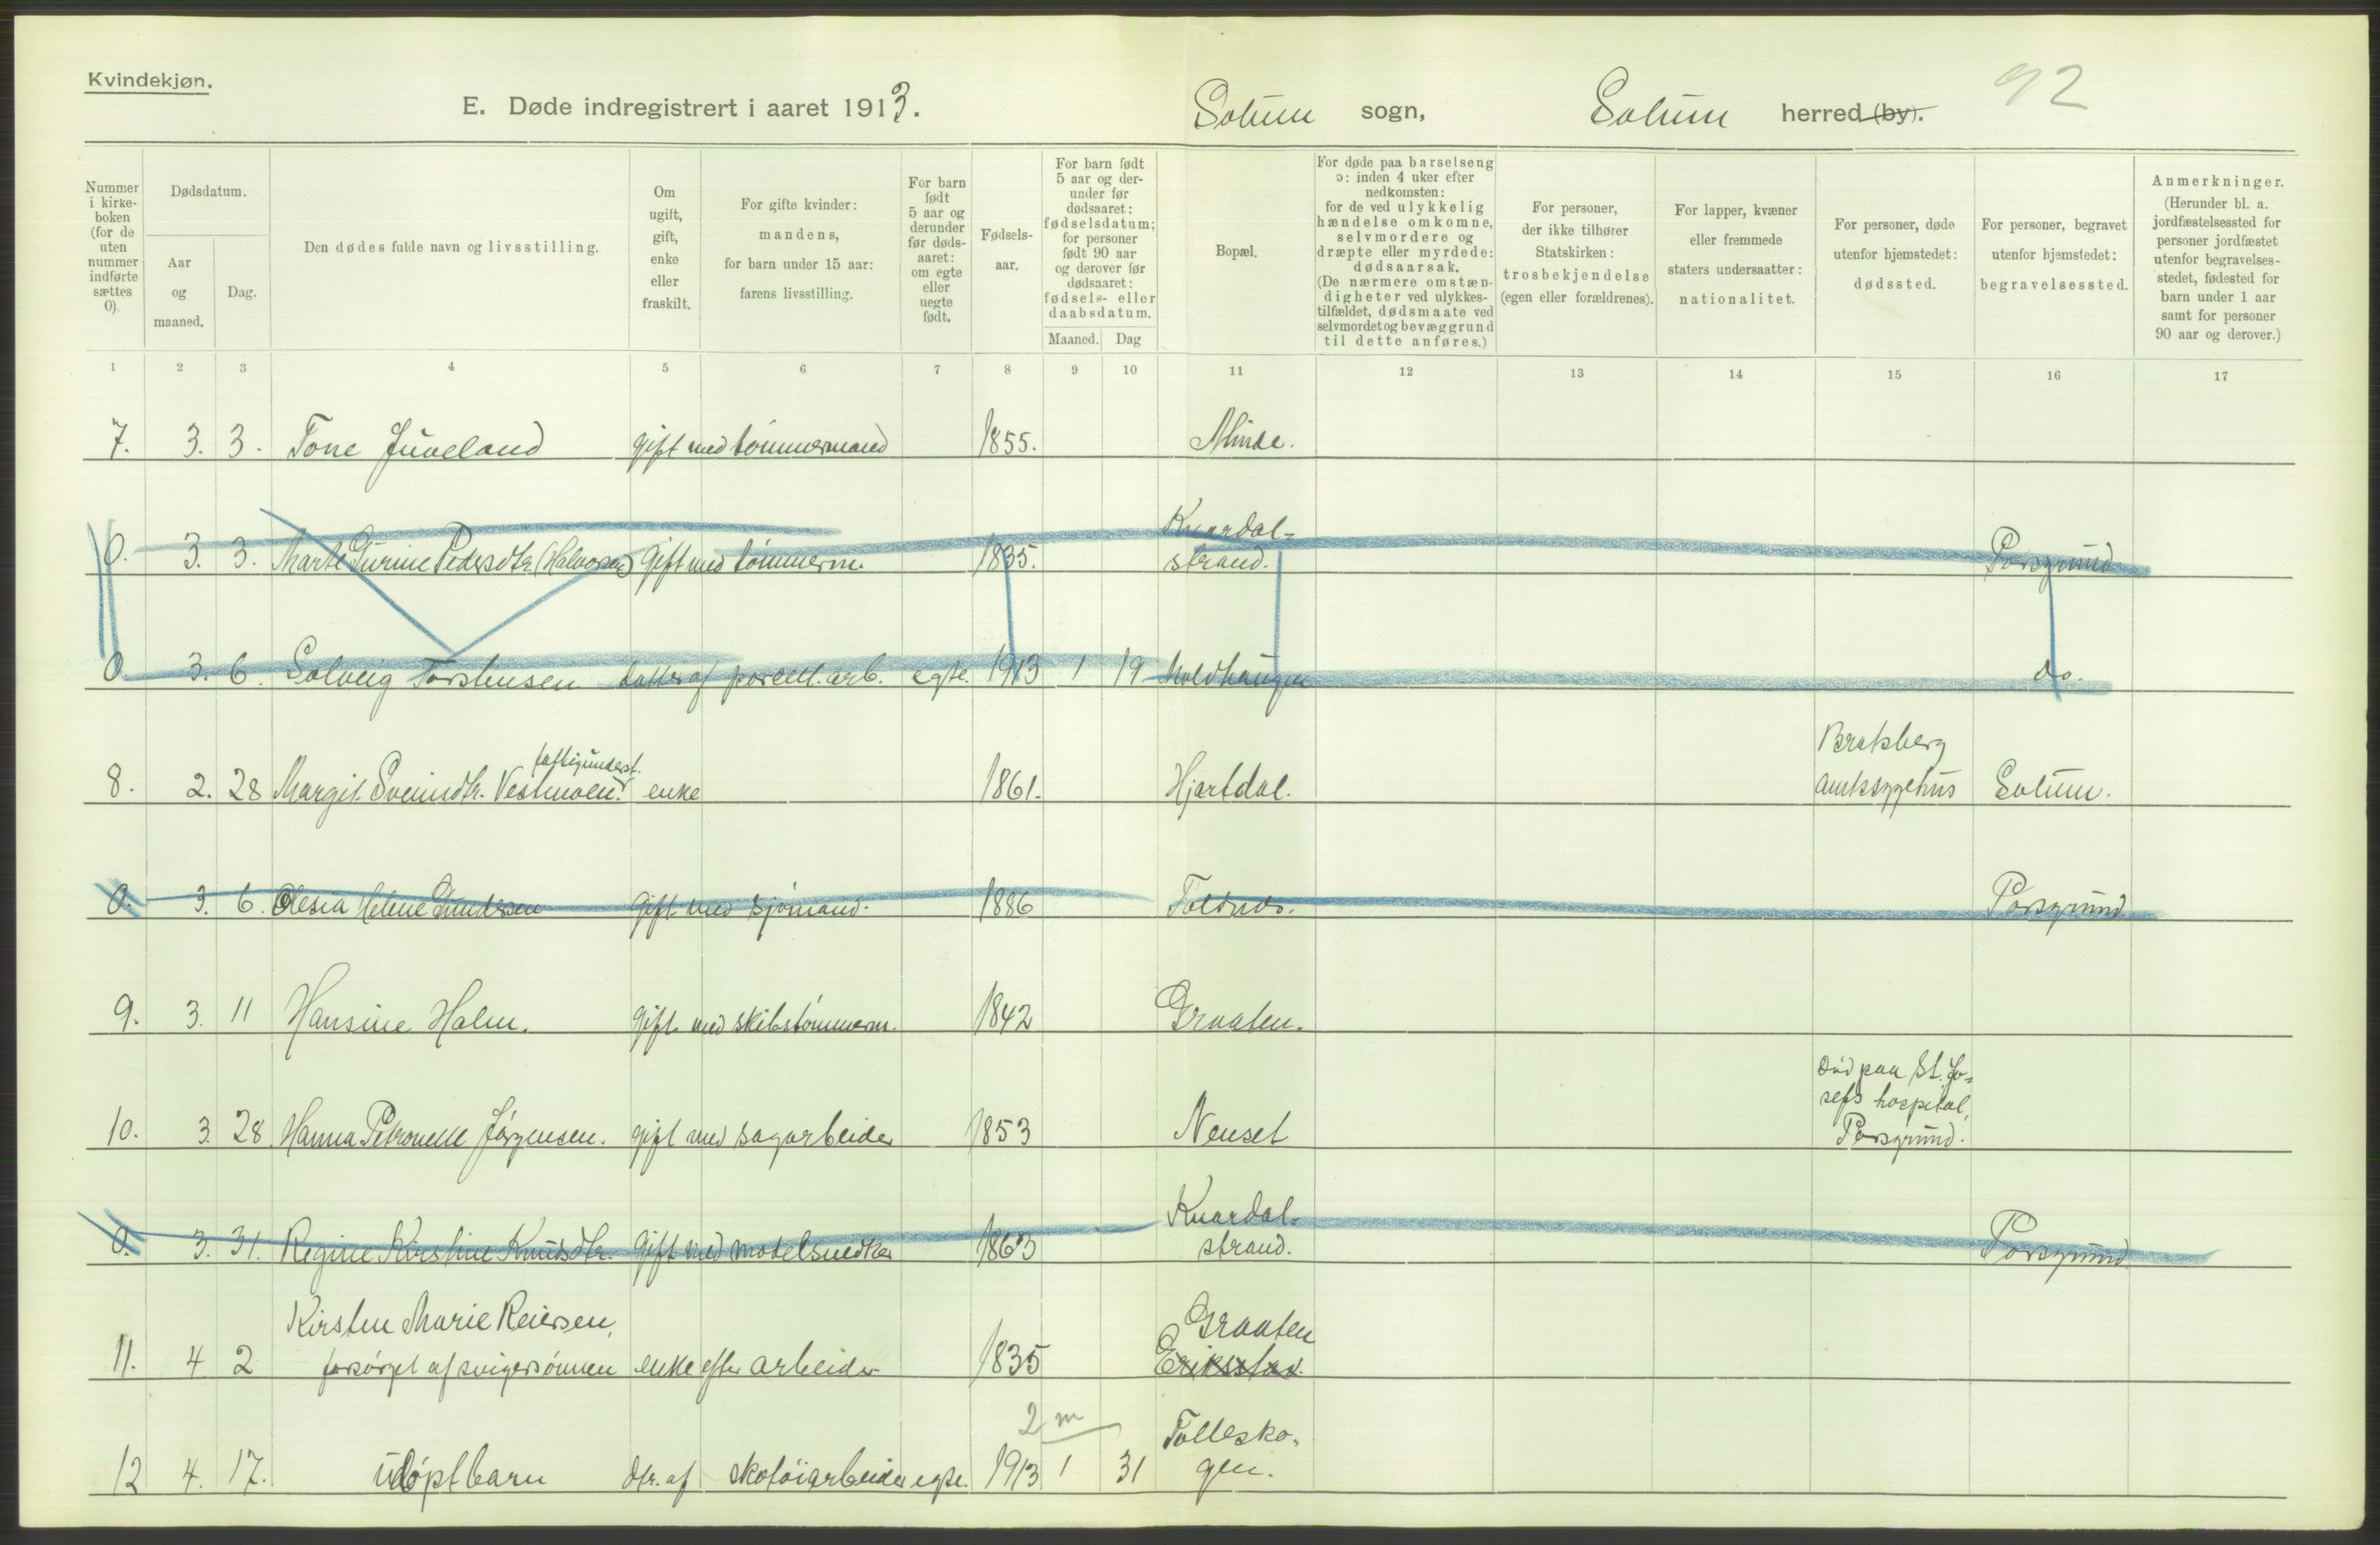 Kvindekjøn.
92
E. Døde indregistrert i aaret 1913. Solum sogn, Solum herred (by).
Nummer i kirkeboken (for de uten nummer indførte sættes 0).
Dødsdatum.
Aar og maaned.
Dag.
Den dødes fulde navn og livsstilling.
Om ugift, gift, enke eller fraskilt.
For gifte kvinder: mandens, for barn under 15 aar: farens livsstilling.
For barn født 5 aar og derunder før dødsaaret: om egte eller uegte født.
Fødselsaar.
For barn født 5 aar og derunder før dødsaaret: fødselsdatum; for personer født 90 aar og derover før dødsaaret: fødsels- eller daabsdatum.
Maaned. Dag
Bopæl.
For døde paa barselseng ɔ: inden 4 uker efter nedkomsten: for de ved ulykkelig hændelse omkomne, selvmordere og dræpte eller myrdede: dødsaarsak. (De nærmere omstændigheter ved ulykkestilfældet, dødsmaate ved selvmordet og bevæggrund til dette anføres.)
For personer, der ikke tilhører Statskirken: trosbekjendelse (egen eller forældrenes).
For lapper, kvæner eller fremmede staters undersaatter: nationalitet.
For personer, døde utenfor hjemstedet: dødssted.
For personer, begravet utenfor hjemstedet: begravelsessted.
Anmerkninger. (Herunder bl. a. jordfæstelsessted for personer jordfæstet utenfor begravelsesstedet, fødested for barn under 1 aar samt for personer 90 aar og derover.)
1 2 3 4 5 6 7 8 9 10 11 12 13 14 15 16 17
7. 3. 3. Tone Juveland gift med tømmermand 1855. Minde.
Knardal-
0. 3. 3. Marte Gurine Pedersdtr. (Halvorsen) Gift med tømmerm. 1835. strand. Porsgrund
0. 3. 6. Solveig Torstensen datter af porcell. arb. egte. 1913 1 19 Moldhaugen do.
fattigunderst. Bratsberg
8. 2. 28 Margit Sveinsdtr. Vestmoen. enke 1861. Hjartdal. amtssygehus Solum.
0. 3. 6. Olesia Helene Gundersen Gift med sjømand. 1886 Toldnes. Porsgrund.
9. 3. 11 Hansine Holm. Gift med skibstømmerm. 1842 Graaten.
Død paa St. Jo-
sefs hospital,
10. 3. 28 Hanna Petronelle Jørgensen. gift med sagarbeider 1853 Nenset Porsgrund.
Knardal-
0. 3. 31. Regine Kirstine Knudsdtr. Gift med modelsnedker 1863 strand. Porsgrund
Kirsten Marie Reiersen, Graaten
11. 4 2 forsørget af svigersønnen enke efter arbeider 1835 Erikstad.
2 m Tollesko-
12 4. 17. udøpt barn dtr. af skotøiarbeider egte. 1913 1 31 gen.